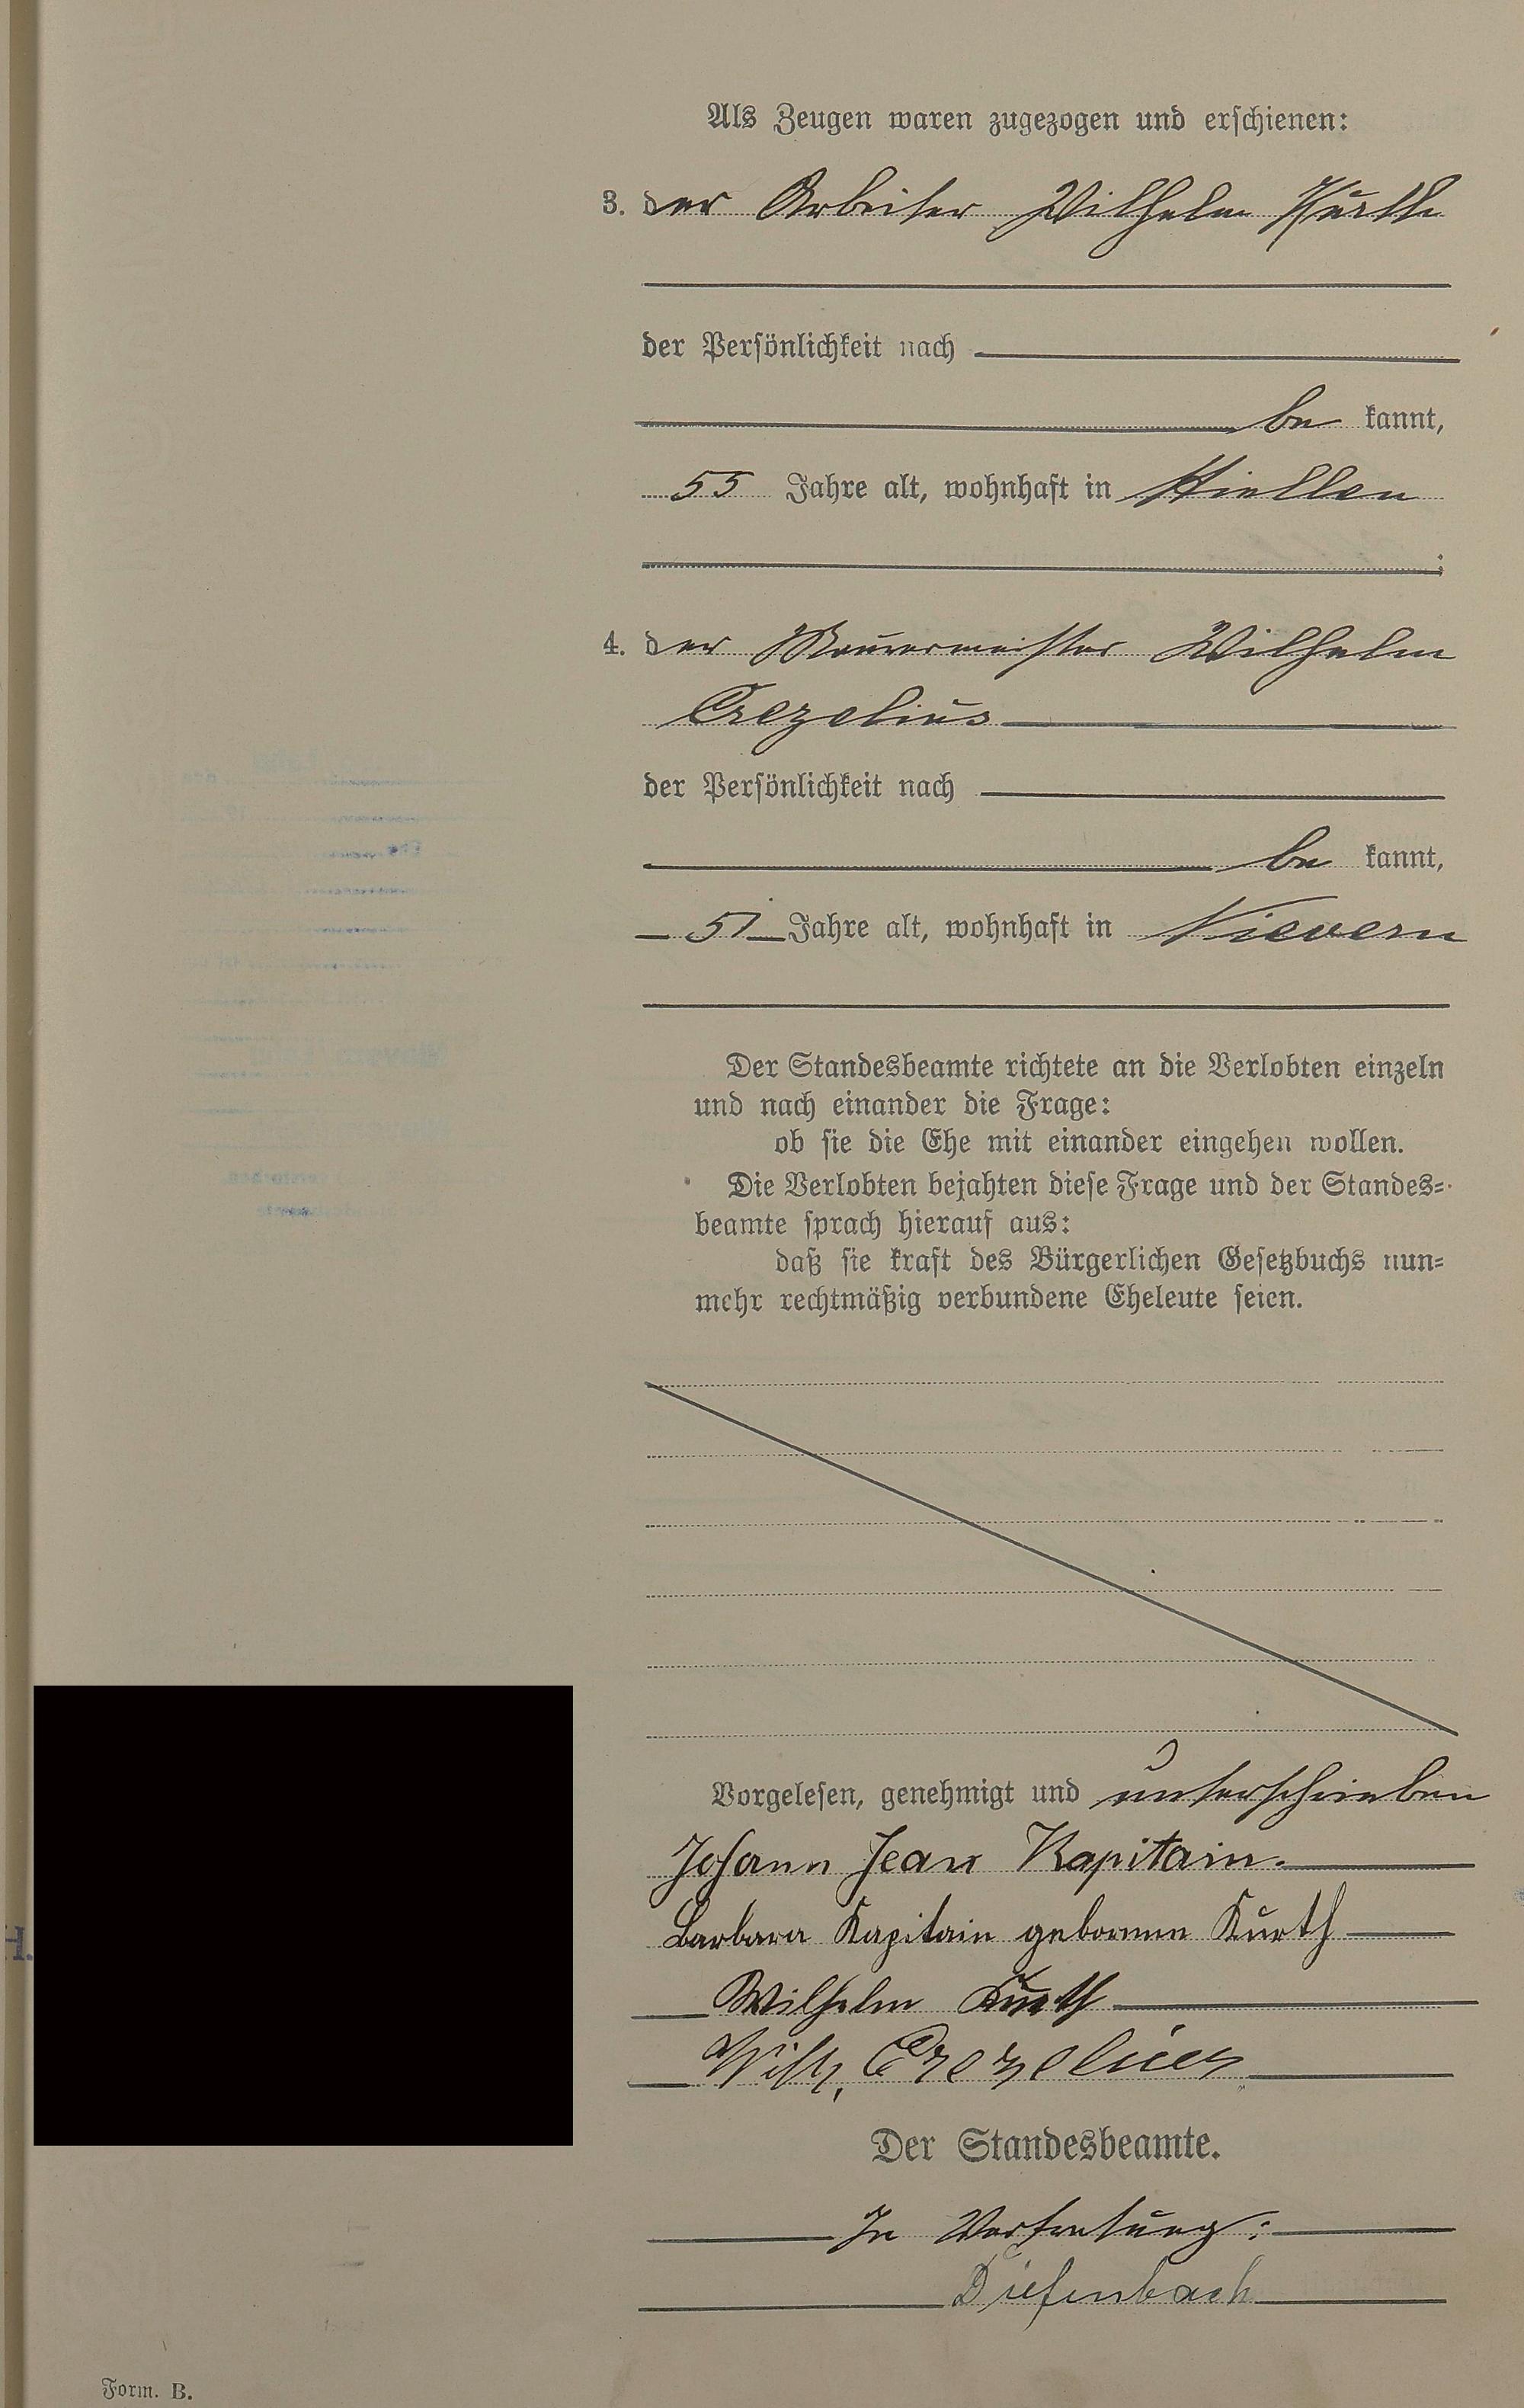 Als Zeugen waren zugezogen und erschienen:
3. der Arbeiter Wilhelm Kurth
der Persönlichkeit nach
be kannt,
55 Jahre alt, wohnhaft in
4. der Maurermeister Wilhelm
Crezelius
der Persönlichkeit nach
be kannt,
51 Jahre alt, wohnhaft in Nievern
Der Standesbeamte richtete an die Verlobten einzeln
und nach einander die Frage:
ob sie die Ehe mit einander eingehen wollen.
Die Verlobten bejahten diese Frage und der Standes=
beamte sprach hierauf aus:
daß sie kraft des Bürgerlichen Gesetzbuchs nun=
mehr rechtmäßig verbundene Eheleute seien.
Vorgelesen, genehmigt und unterschrieben
Johann Jean Kapitain.
Barbara Kapitain geborenen Kurth
Wilhelm Kurth
Wilh. Crezelius
Der Standesbeamte.
In Vertretung:
Diefenbach
H.
Form. B.